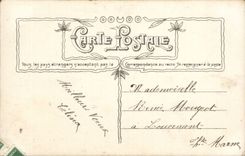 CARTE POSTALE
Tous les pays étrangers n'acceptent pas la Correspondance au recto. (Se renseigner à la poste)
Meilleurs Voeux
Mademoiselle
Mougeot
à
Hte Marne